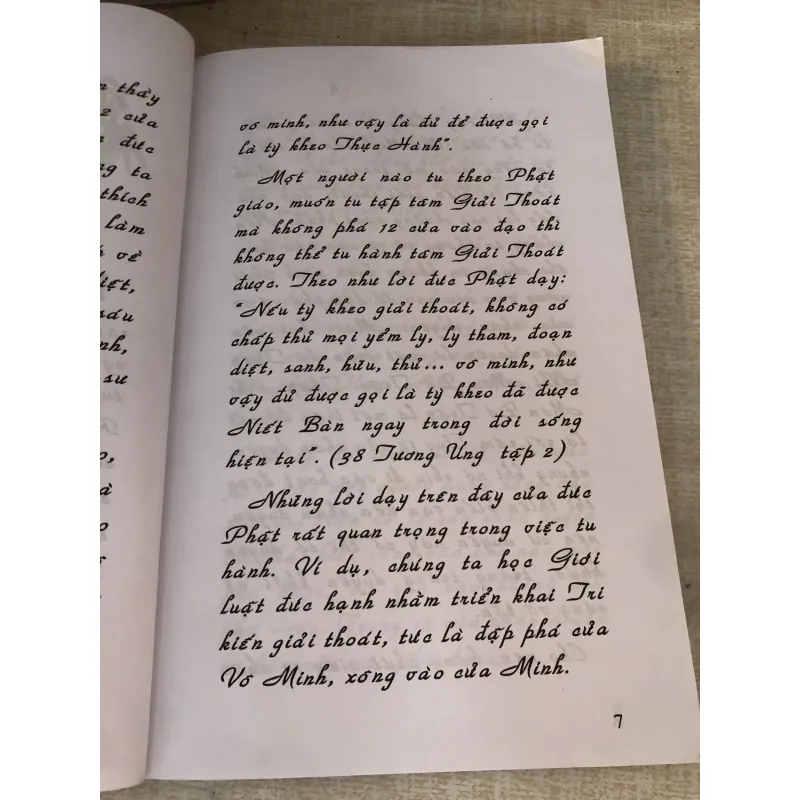 n thầy
2 cửa
đức
ng ta
thích
làm
về
diệt,
sáu
nh,
sư
o,
à
o
vô minh, như vậy là đủ để được gọi
là tỳ kheo Thực Hành".
Một người nào tu theo Phật
giáo, muốn tu tập tâm Giải Thoát
mà không phá 12 cửa vào đạo thì
không thể tu hành tâm Giải Thoát
được. Theo như lời đức Phật dạy:
"Nếu tỳ kheo giải thoát, không có
chấp thủ mọi yểm ly, ly tham, đoạn
diệt, sanh, hữu, thủ... vô minh, như
vậy đủ được gọi là tỳ kheo đã được
Niết Bàn ngay trong đời sống
hiện tại". (38 Tương Ưng tập 2)
Những lời dạy trên đây của đức
Phật rất quan trọng trong việc tu
hành. Ví dụ, chúng ta học Giới
luật đức hạnh nhằm triển khai Tri
kiến giải thoát, tức là đập phá cửa
Vô Minh, xông vào cửa Minh.
7